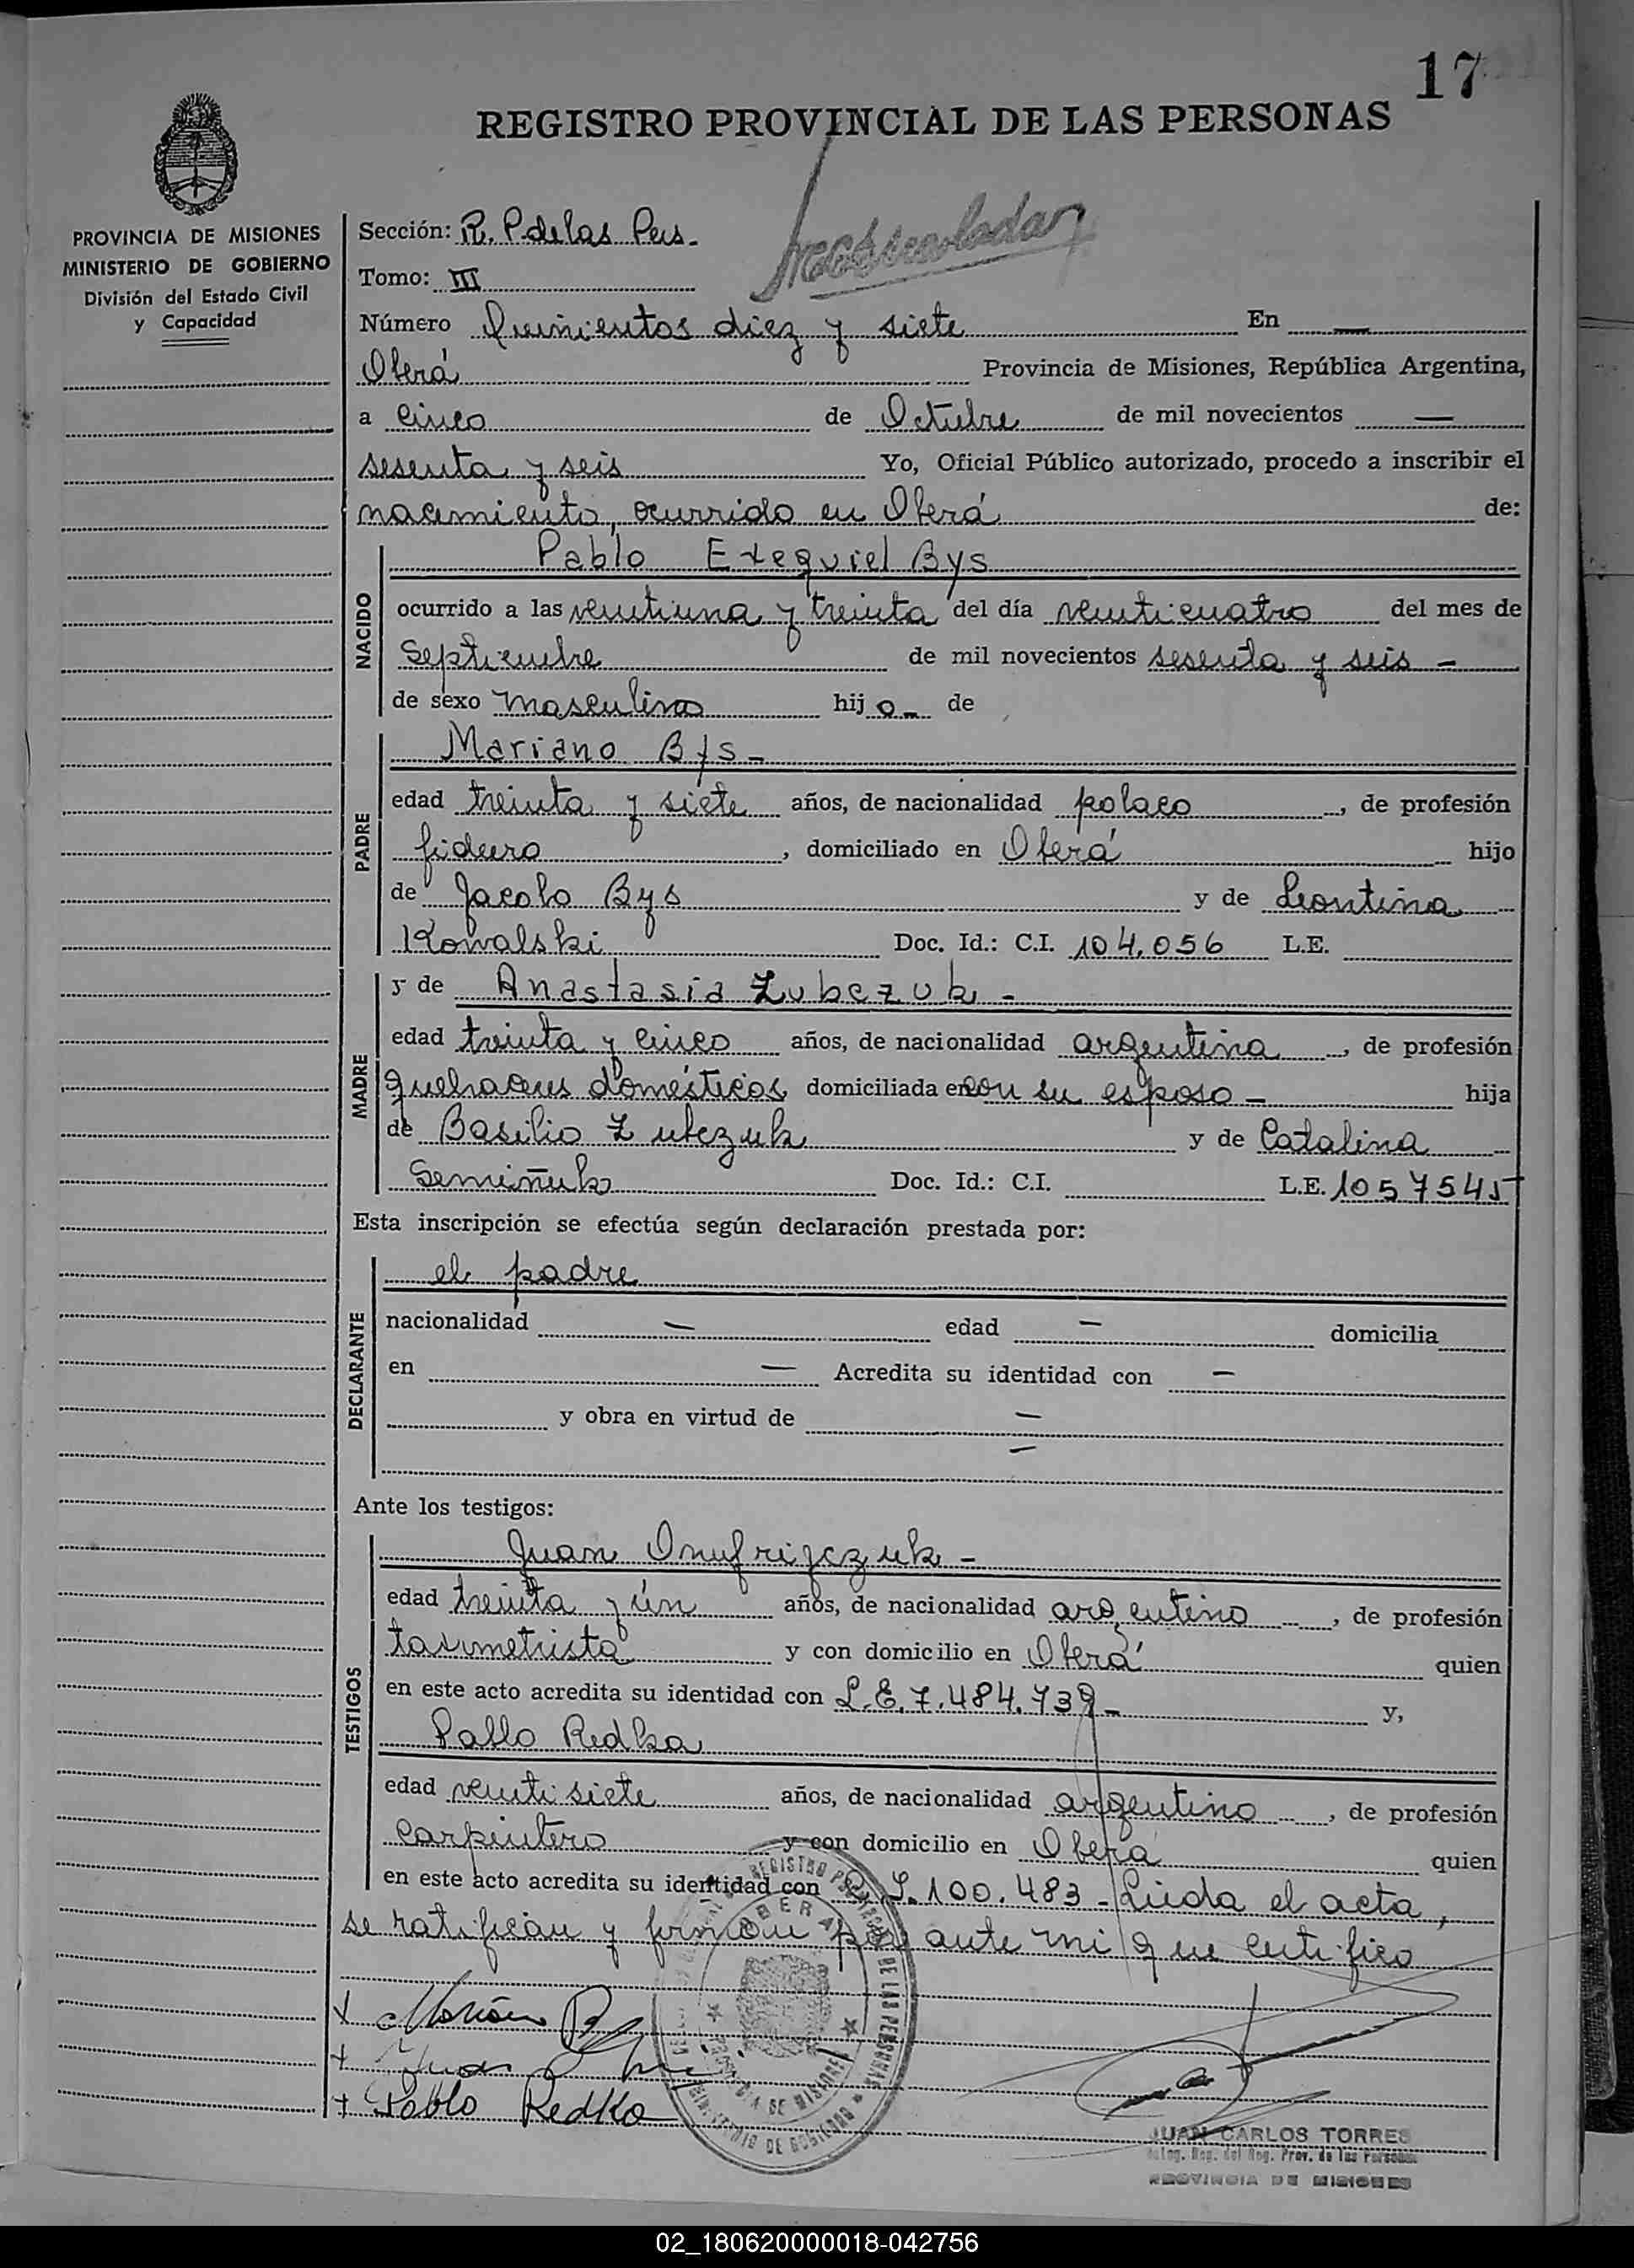 17
REGISTRO PROVINCIAL DE LAS PERSONAS
PROVINCIA DE MISIONES
MINISTERIO DE GOBIERNO
División del Estado Civil
y Capacidad
Sección: R. P de las Pers.
Tomo: III
Número Quinientos diez y siete En —
Oberá Provincia de Misiones, República Argentina,
a cinco de Octubre de mil novecientos —
sesenta y seis Yo, Oficial Público autorizado, procedo a inscribir el
nacimiento, ocurrido en Oberá de:
NACIDO
Pablo Exequiel Bys
ocurrido a las veintiuna y treinta del día veinticuatro del mes de
Septiembre de mil novecientos sesenta y seis —
de sexo masculino hijo — de
PADRE
Mariano Bys —
edad treinta y siete años, de nacionalidad polaco, de profesión
fideero, domiciliado en Oberá hijo
de Jacobo Bys y de Leontina
Kowalski Doc. Id.: C.I. 104.056 L.E.
MADRE
y de Anastasia Zubczuk —
edad treinta y cinco años, de nacionalidad argentina, de profesión
quehaceres domésticos domiciliada en con su esposo — hija
de Basilio Zubczuk y de Catalina
Semiñuk Doc. Id.: C.I. L.E. 1057545
Esta inscripción se efectúa según declaración prestada por:
DECLARANTE
el padre
nacionalidad — edad — domicilia
en — Acredita su identidad con —
y obra en virtud de —
—
Ante los testigos:
TESTIGOS
Juan Onufrijczuk —
edad treinta y ún años, de nacionalidad argentino, de profesión
taximetrista y con domicilio en Oberá quien
en este acto acredita su identidad con L.E. 7.484.739 — y,
Pablo Redka
edad veintisiete años, de nacionalidad argentino, de profesión
carpintero y con domicilio en Oberá quien
en este acto acredita su identidad con 100.483 — Leída el acta,
se ratifican y firman por ante mi que certifico
Pablo Redka
JUAN CARLOS TORRES
PROVINCIA DE MISIONES
02_180620000018-042756